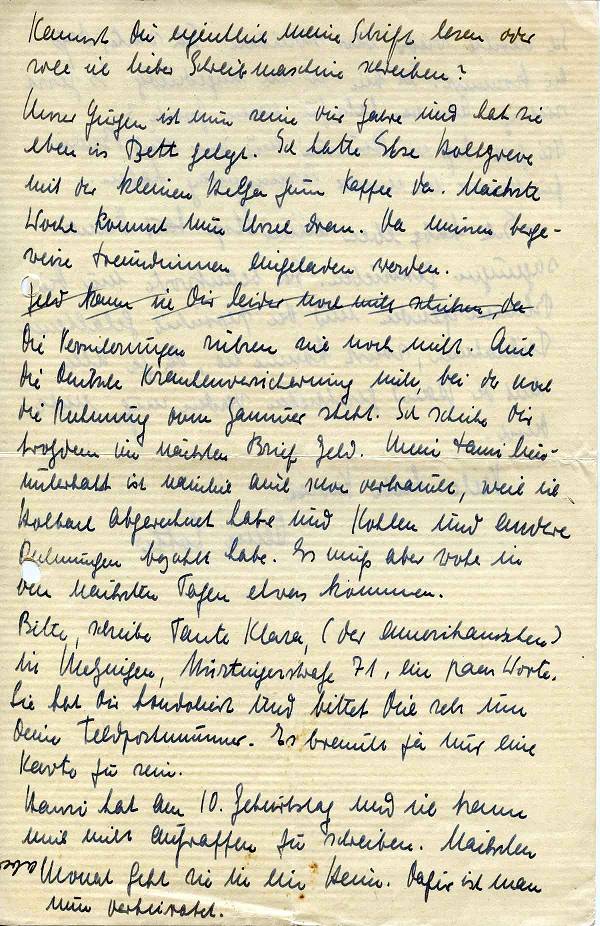 Kannst Du eigentlich meine Schrift lesen oder
soll ich lieber Schreibmaschine schreiben?
Unser Jürgen ist nun seine vier Jahre und hat sie
eben ins Bett gelegt. Ich hatte Else Hollgreve
mit der kleinen Helga zum Kaffee da. Nächste
Woche kommt nun Ursel dran. Da müssen
Freundinnen eingeladen werden.
Geld kann ich Dir leider noch nicht schicken, da
Die Versicherungen rühren sich noch nicht. Auch
die Deutsche Krankenversicherung nicht, bei der noch
die Rechnung vom Januar steht. Ich schicke Dir
trotzdem im nächsten Brief Geld. Mein Familien-
unterhalt ist nämlich auch schon verbraucht, weil ich
abgerechnet habe und Kohlen und andere
Rechnungen bezahlt habe. Es muß aber wohl in
den nächsten Tagen etwas kommen.
Bitte, schreibe Tante Klara, (der amerikanischen)
in Metzingen, Nürtingerstraße 71, ein paar Worte.
Sie hat Dir kondoliert und bittet Dich sehr um
Deine Feldpostnummer. Es braucht ja nur eine
Karte zu sein.
Hansi hat am 10. Geburtstag und ich kann
mich nicht aufraffen zu schreiben. Nächsten
Monat geht sie in ein Heim. Dafür ist man
aber
nun verheiratet.